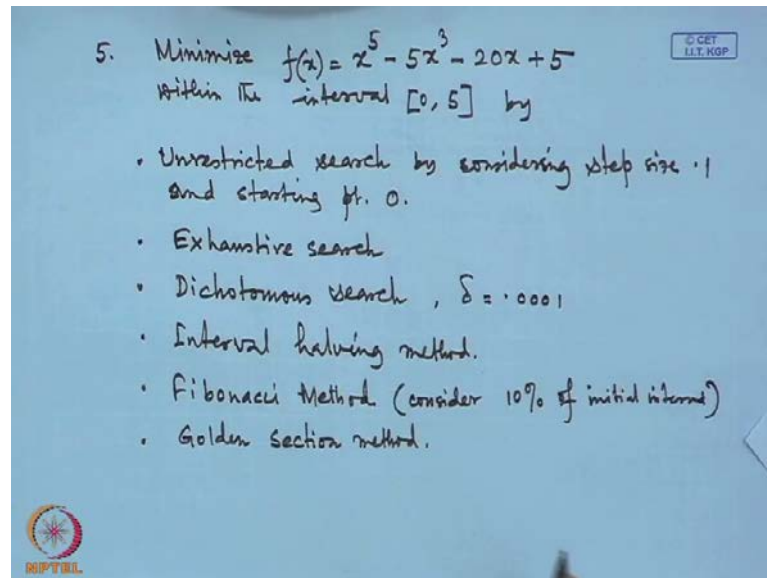 © CET
I.I.T. KGP
5. Minimize f(x) = x⁵ - 5x³ - 20x + 5
within the interval [0, 5] by
· Unrestricted search by considering step size .1
and starting pt. 0.
· Exhaustive search
· Dichotomous search, δ = .0001
· Interval halving method.
· Fibonacci Method (consider 10% of initial interval)
· Golden section method.
NPTEL